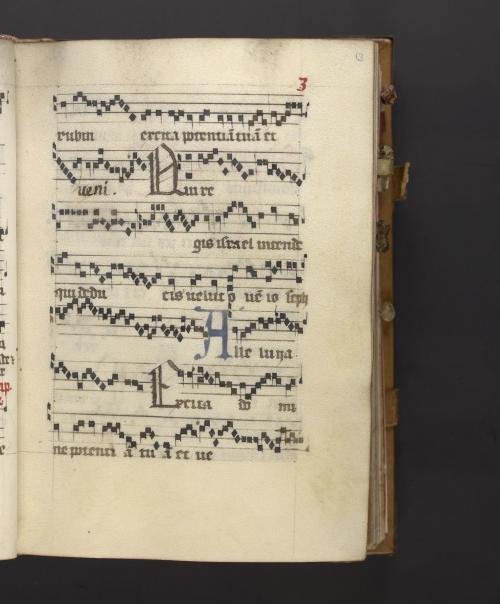 3
rubin excita potentiā tuā et
ueni. Qui re
gis israel intende
qui dedu cis uelut o uē io seph
Alle luya
Excita do mi
ne potenti ā tu ā et ue